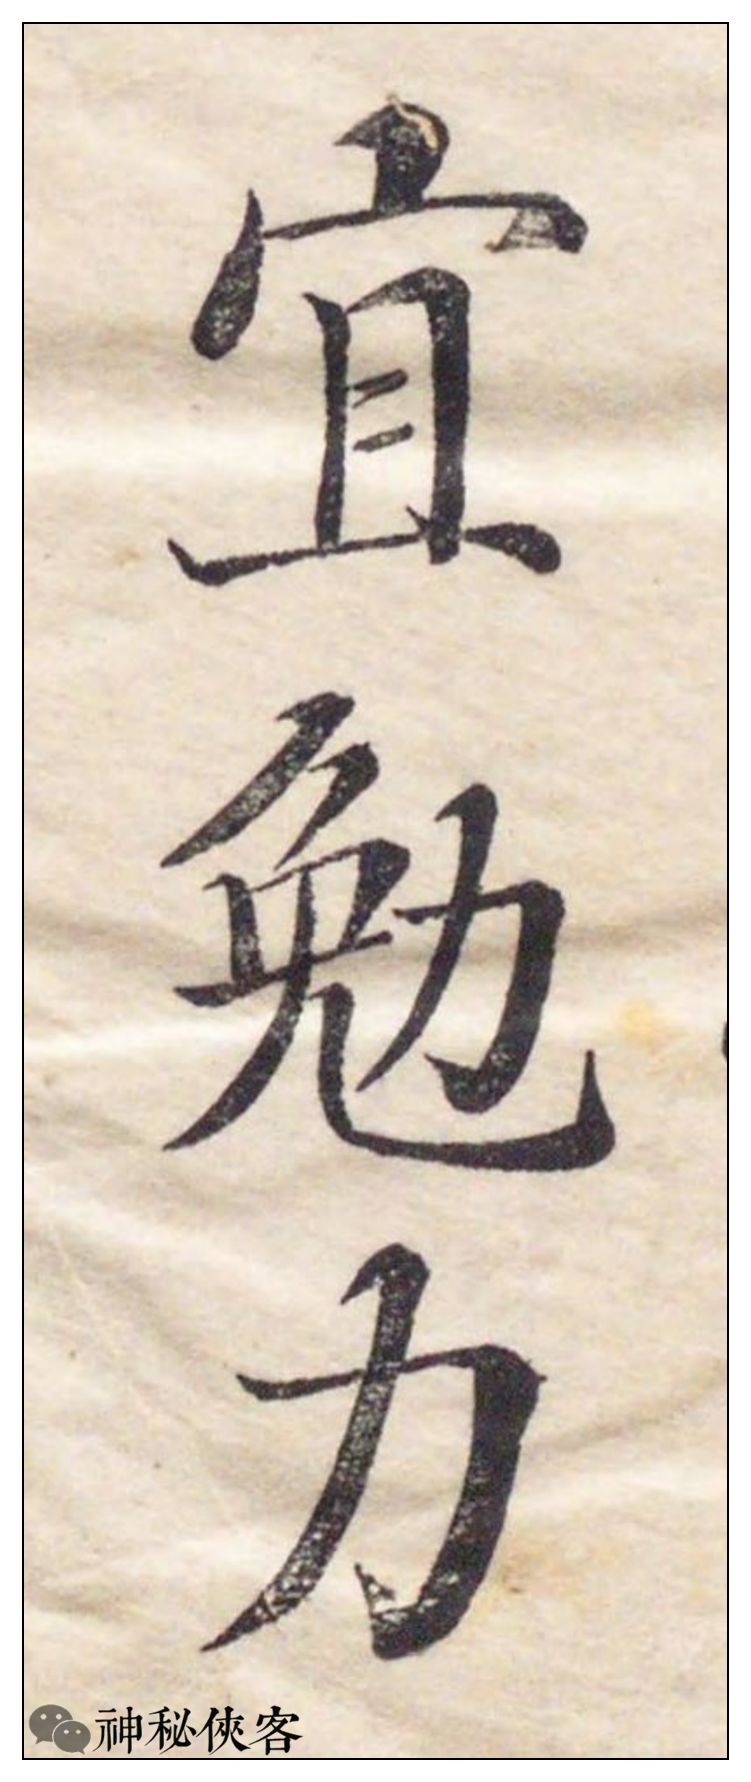 宜勉力
神秘俠客